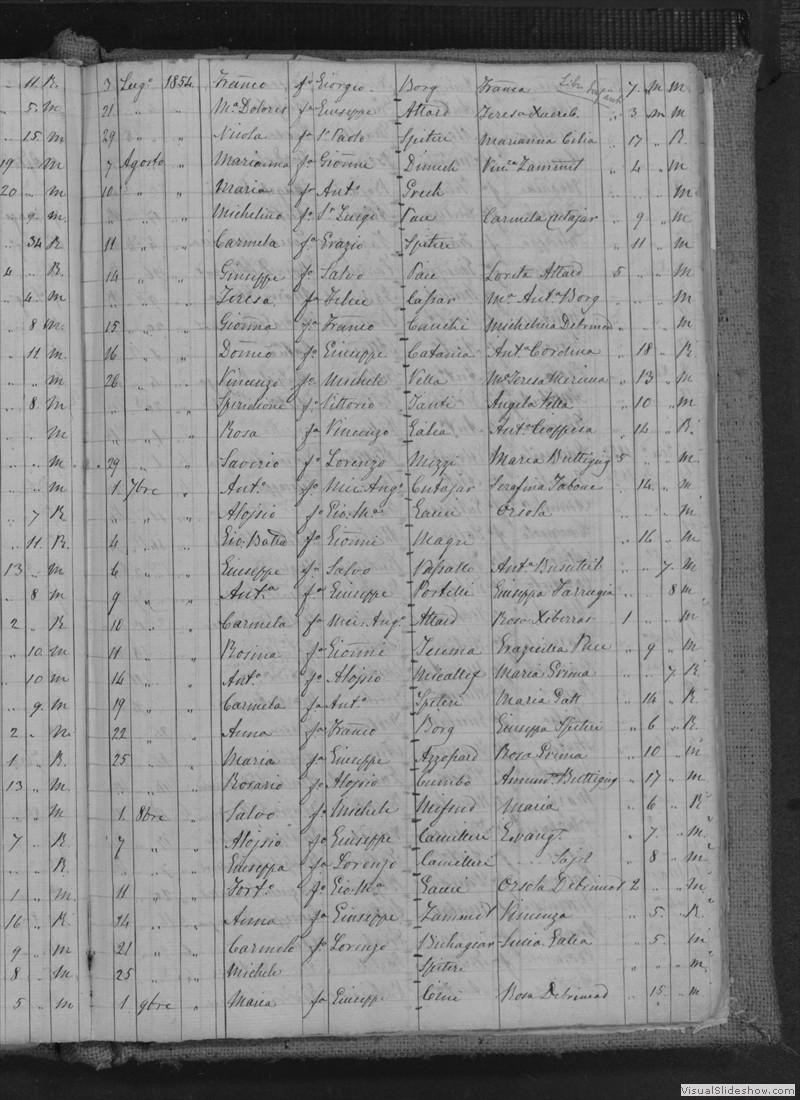 11. R. 3 Lugº 1854 Franco fº Giorgio Borg Franca 7. M M
5. M 21 " " Mª Dolores fª Giuseppe Attard Teresa Xuereb " 3 M M
15 M 29 " " Nicola fº Sr Paolo Spiteri Marianna Cilia " 17 " R.
19 " M 7 Agosto " Marianna fª Gionni Dimech Vinª Zammit " 4 " M
20 " M 10 " " Maria fª Antº Grech " M
" 9 M. " " " Michelina fª Sr Luigi Pace Carmela Cutajar " 9 " M
" 34 R 11 " " Carmela fª Grazio Spiteri " 11 " M
4 " R. 14 " " Giuseppe fº Salvo Pace Loreta Attard 5 " " M
" 4. M " " " Teresa fª Felice Caffar Mª Antª Borg " " " M
" 8 M. 15 " " Gionna fª Franco Michelina Debrincat " " " M
" 11 M. 16 " " Domco fº Giuseppe Catania Antª Cordina " 18 " R
" " M 26 " " Vincenzo fº Michele Vella Mª Teresa " 13 " M
" 8 M " " " Spiridione fº Vittorio Santi Angela Villa " 10 " M
" " M " " Rosa fª Vincenzo Galea Antª " 14 " R.
" " M. 29 " " Saverio fº Lorenzo Mizzi Maria Buttigieg 5 " " M
" " M 1. 7bre " Antº fº Mic. Angº Cutajar Serafina Tabone " 14. " M
" 7 R " " " Alojsio fº Gio. Mª Gauci Orsola " " " M
" 11. R 4 " " Gio. Batta fº Gionni Magri " 16 " M
13 " M 6 " " Giuseppe fº Salvo Vassallo Antª Busuttil " " 7 M
" 8 M 9 " " Antª fª Giuseppe Portelli Giuseppa Farrugia " " 8 M
2 " R 10 " " Carmela fª Mic. Angº Attard Rosa Xiberras 1 " " M
" 10 M 11 " " Rosina fª Gionni Grazia Pace " 9 " M
" 10 M 14 " " Antº fº Alojsio Micallef Maria Grima " " 7 R
" 9. M 19 " " Carmela fª Antº Spiteri Maria Gatt " 14 " R
2 " M 22 " " Anna fª Franco Borg Giuseppa Spiteri " 6 " R.
1 " R. 25 " " Maria fª Giuseppe Azzopard Rosa Grima " 10 " M
13 " M. " " Rosario fº Alojsio Cumbo Annunª Buttigieg " 17 " M
" " M 1. 8bre " Salvo fº Michele Mifsud Maria " 6 " R
7 " R 7 " " Alojsio fº Giuseppe Camilleri Evangª " 7. " M
" " R. " " Giuseppa fª Lorenzo Camilleri Sajd " 8 " M
1 " M. 11 " " Fortº fº Gio. Mª Gauci Orsola Debrincat 2 " " M
16 " R. 14 " " Anna fª Giuseppe Zammit Vincenza " 5. " R
9 " M 21 " " Carmelo fº Lorenzo Buhagiar Lucia Galea " 5. " M
8 " M 25 " " Michele Spiteri " " " M
5 " M 1. 9bre " Maria fª Giuseppe Rosa Debrincat " 15 " M
VisualSlideshow.com